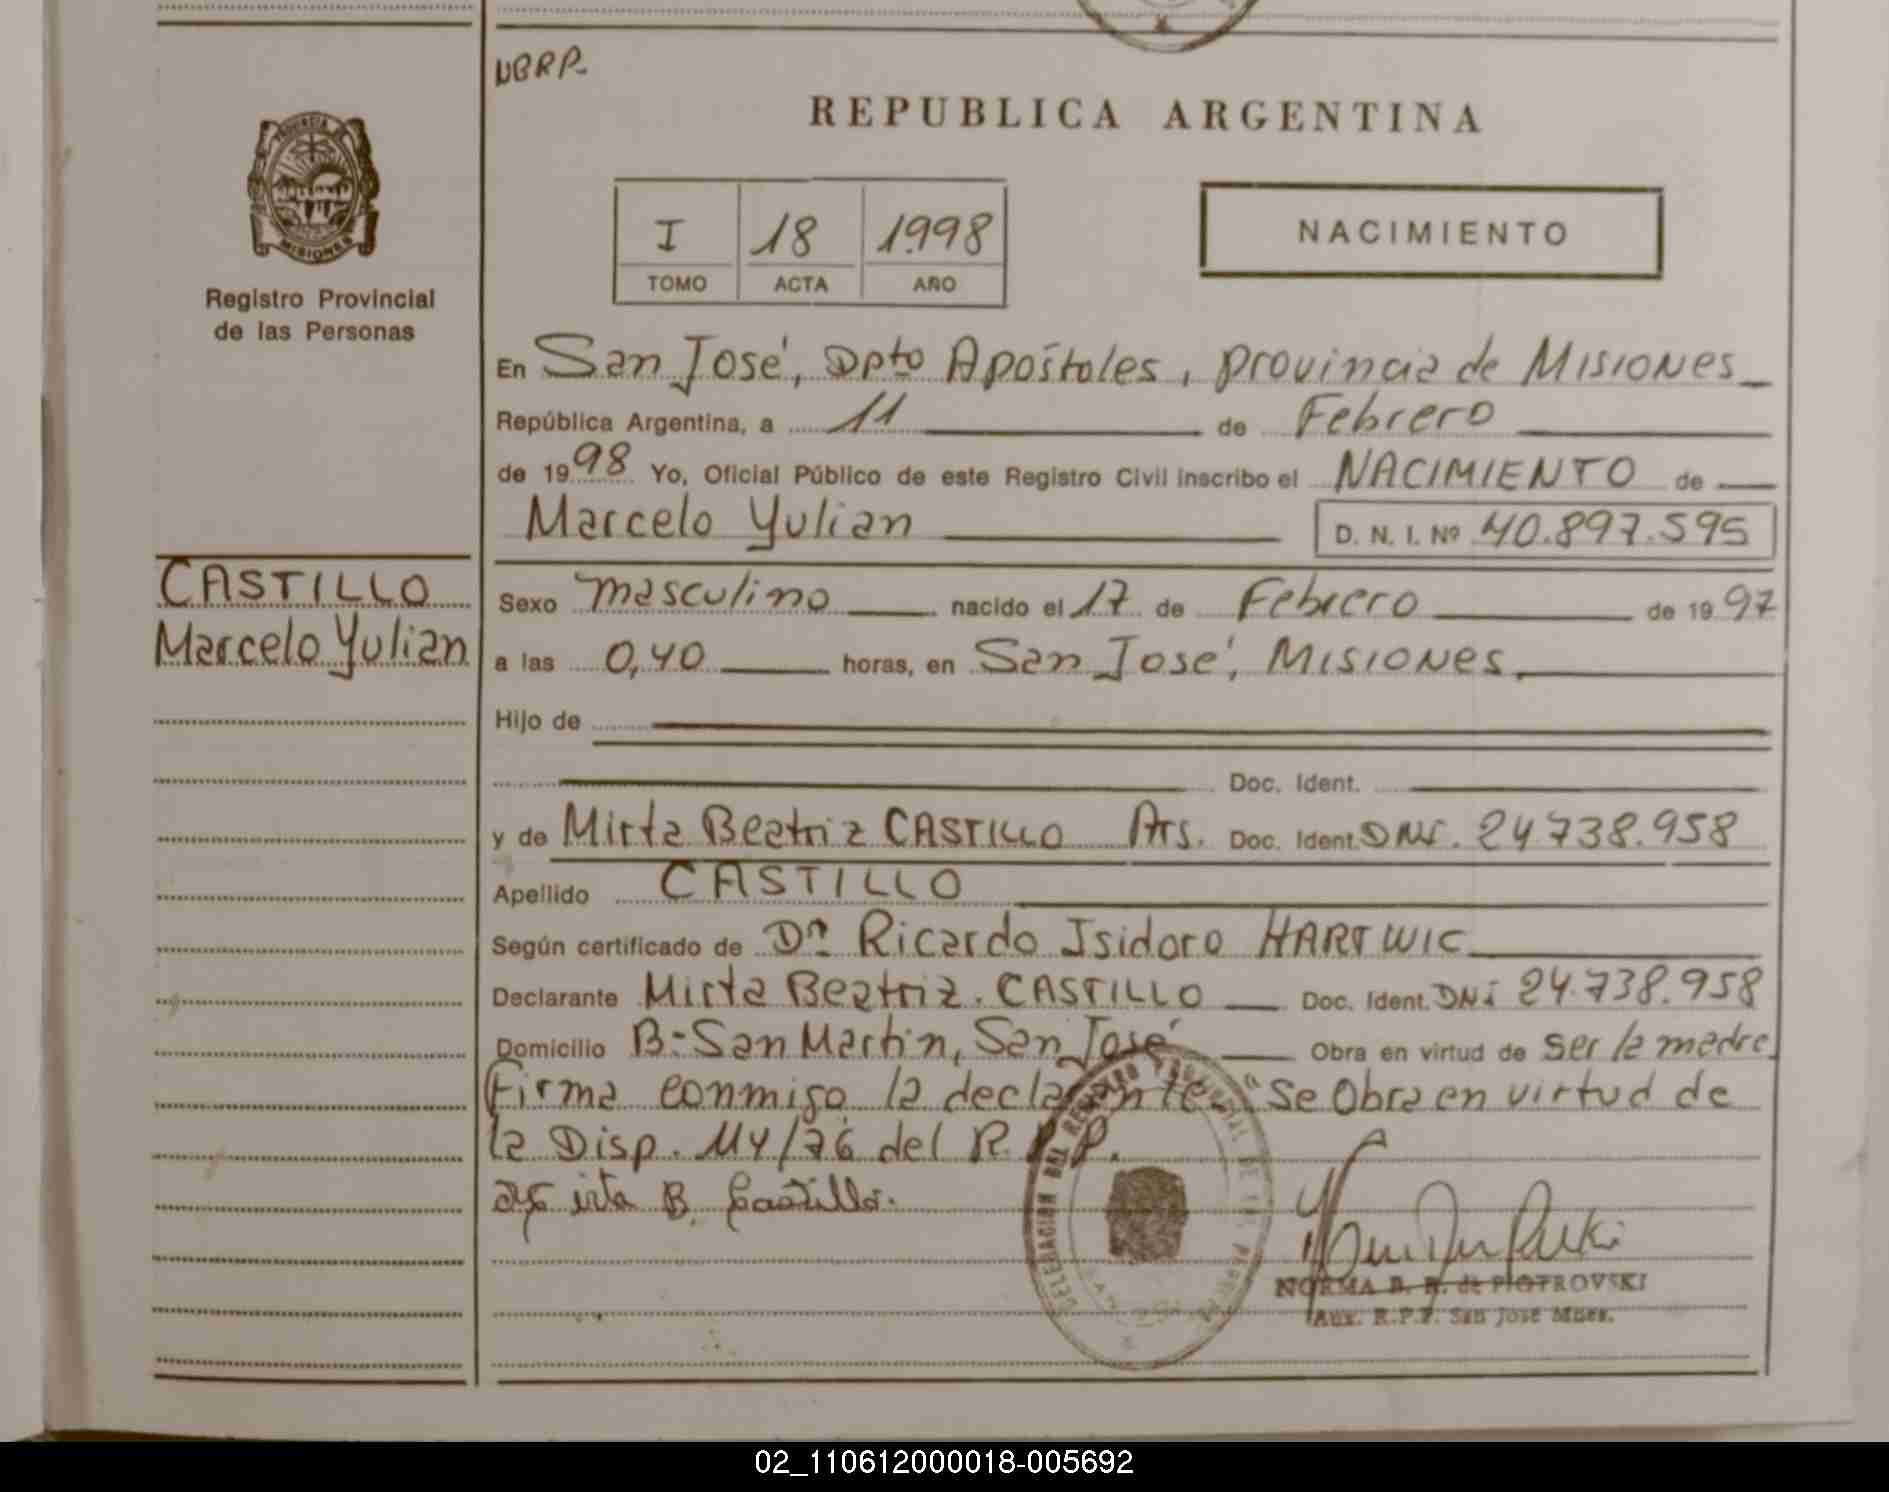 NBRP.
REPUBLICA ARGENTINA
PROVINCIA DE
MISIONES
Registro Provincial
de las Personas
I 18 1998
TOMO ACTA AÑO
NACIMIENTO
En San José, Dpto Apóstoles, provincia de Misiones
República Argentina, a 11 de Febrero
de 1998 Yo, Oficial Público de este Registro Civil inscribo el NACIMIENTO de
Marcelo Yulian D. N. I. Nº 40.897.595
CASTILLO
Marcelo Yulian
Sexo masculino nacido el 17 de Febrero de 1997
a las 0,40 horas, en San José, Misiones.
Hijo de
Doc. Ident.
y de Mirta Beatriz CASTILLO Ars. Doc. Ident. DNI. 24738.958
Apellido CASTILLO
Según certificado de Dn Ricardo Isidoro HARTWIC
Declarante Mirta Beatriz. CASTILLO Doc. Ident. DNi 24.738.958
Domicilio B: San Martin, San José Obra en virtud de ser la madre
Firma conmigo la declarante "Se Obra en virtud de
la Disp. 114/76 del R.P.P.
B. Castillo.
DELEGACION DEL REGISTRO PROVINCIAL DE LAS PERSONAS
NORMA B. R. de PIOTROVSKI
Aux. R.P.P. San José Mnes.
02_110612000018-005692